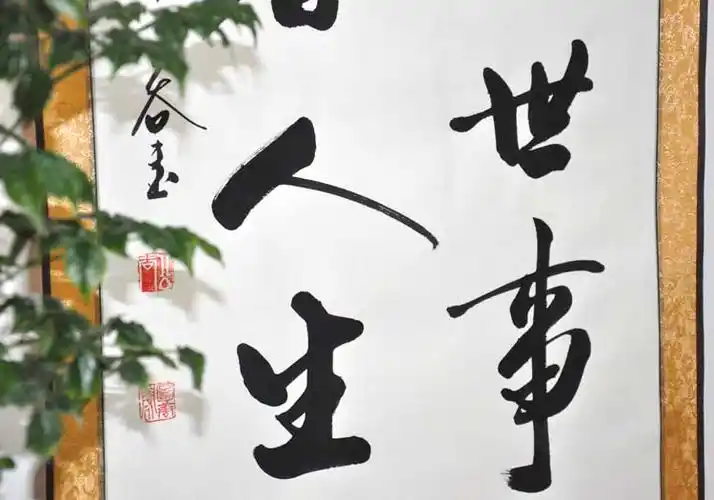 世事
人生
谷書